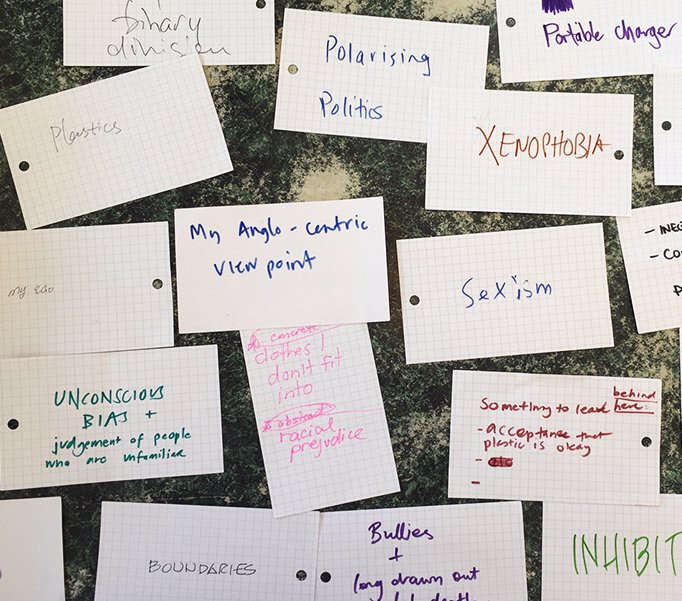 binary
division
Polarising
Politics
Portable charger
Plastics
XENOPHOBIA
My Anglo-centric
viewpoint
my ego
Sexism
- INEQ
- CO
P
concrete
clothes I
don't fit
into
abstract
racial
prejudice
UNCONSCIOUS
BIAS +
judgement of people
who are unfamiliar
Something to leave behind
here:
- acceptance that
plastic is okay
-
-
BOUNDARIES
Bullies
+
long drawn out
INHIBIT